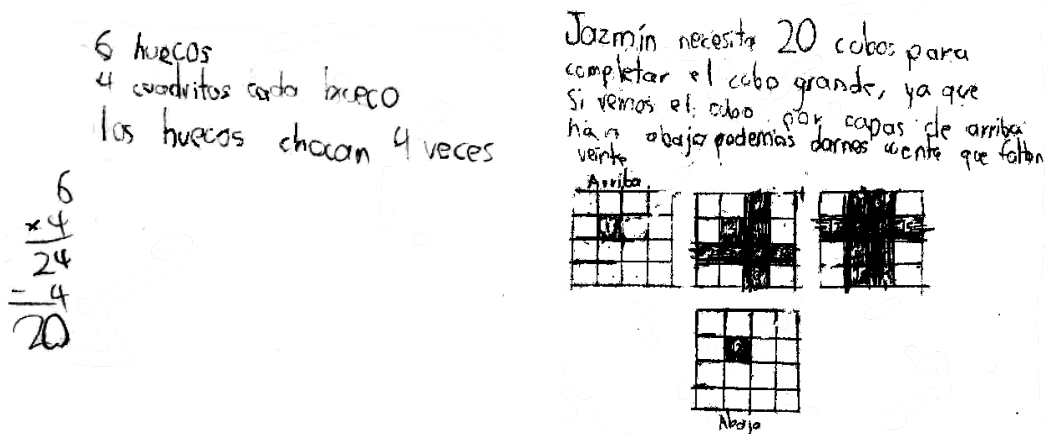 6 huecos
4 cuadritos cada hueco
los huecos chocan 4 veces
6
× 4
24
- 4
20
Jazmín necesita 20 cubos para
completar el cubo grande, ya que
si vemos el cubo por capas de arriba
abajo podemos darnos cuenta que faltan
veinte
Arriba
Abajo